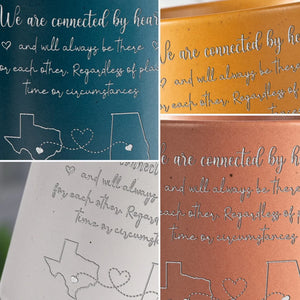 We are connected by hear
and will always be there
or each other. Regardless of pla
time or circumstances
We are connected by hea
and will always be th
or each other. Regardless of
time or circumstan
and will always
for each other. Regar
time or
circumstanc
We are connected by hea
and will always be the
or each other. Regardless of pla
time or circumstances